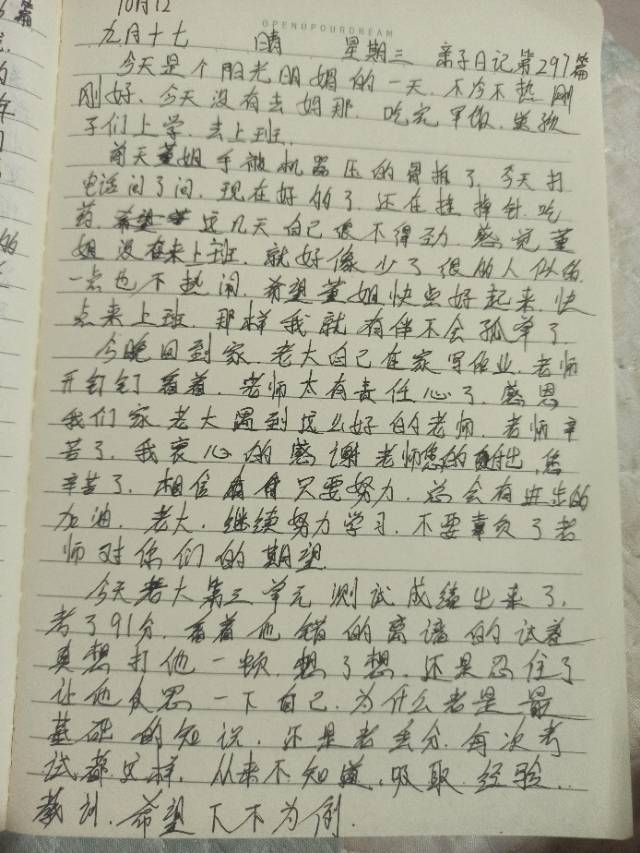 10月12
OPENUPOURDREAM
九月十七 晴 星期三 亲子日记第297篇
今天是个阳光明媚的一天.不冷不热刚
刚好.今天没有去妈那.吃完早饭.送孩
子们上学.去上班.
前天董姐手被机器压的骨折了.今天打
电话问了问.现在好的了.还在挂掉针.吃
药.这几天自己很不得劲.感觉董
姐没有来上班.就好像少了很的人似的
一点也不热闹.希望董姐快点好起来.快
点来上班.那样我就有伴不会孤单了.
今晚回到家.老大自己在家写作业.老师
开钉钉看着.老师太有责任心了.感恩
我们家老大遇到这么好的老师.老师辛
苦了.我衷心的感谢老师您的付出.您
辛苦了.相信只要努力.总会有进步的
加油.老大.继续努力学习.不要辜负了老
师对你们的期望
今天老大第三单元测试成绩出来了.
考了91分.看着他错的离谱的试卷
真想打他一顿.想了想.还是忍住了
让他反思一下自己.为什么老是最
基础的知识.还是老丢分.每次考
试都这样.从来不知道.吸取.经验..
教训.希望下不为例.